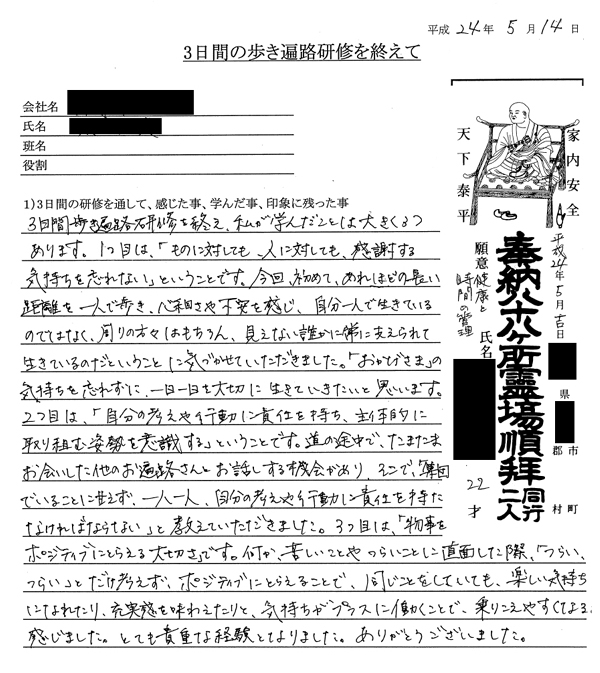 平成 24 年 5 月 14 日
3日間の歩き遍路研修を終えて
会社名
氏名
班名
役割
1)3日間の研修を通して、感じた事、学んだ事、印象に残った事
3日間歩き遍路研修を終え、私が学んだことは大きく3つ
あります。1つ目は、「ものに対しても、人に対しても、感謝する
気持ちを忘れない」ということです。今回、初めて、あれほどの長い
距離を一人で歩き、心細さや不安を感じ、自分一人で生きている
のではなく、周りの方々はもちろん、見えない誰かに常に支えられて
生きているのだということに気づかせていただきました。「おかげさま」の
気持ちを忘れずに、一日一日を大切に生きていきたいと思います。
2つ目は、「自分の考えや行動に責任を持ち、主体的に
取り組む姿勢を意識する」ということです。道の途中で、たまたま
お会いした他のお遍路さんとお話しする機会があり、そこで、「集団
でいることに甘えず、一人一人、自分の考えや行動に責任を持た
なければならない」と教えていただきました。3つ目は、「物事を
ポジティブにとらえる大切さ」です。何か、苦しいことやつらいことに直面した際、「つらい、
つらい」とだけ考えず、ポジティブにとらえることで、同じことをしていても、楽しい気持ち
になれたり、充実感を味わえたりと、気持ちがプラスに働くことで、乗りこえやすくなると
感じました。とても貴重な経験となりました。ありがとうございました。
家内安全
天下泰平
平成24年5月吉日
奉納八十八ヶ所霊場順拝
同行二人
願意 健康と
時間の管理
氏名
22 才
県
市
郡
町
村